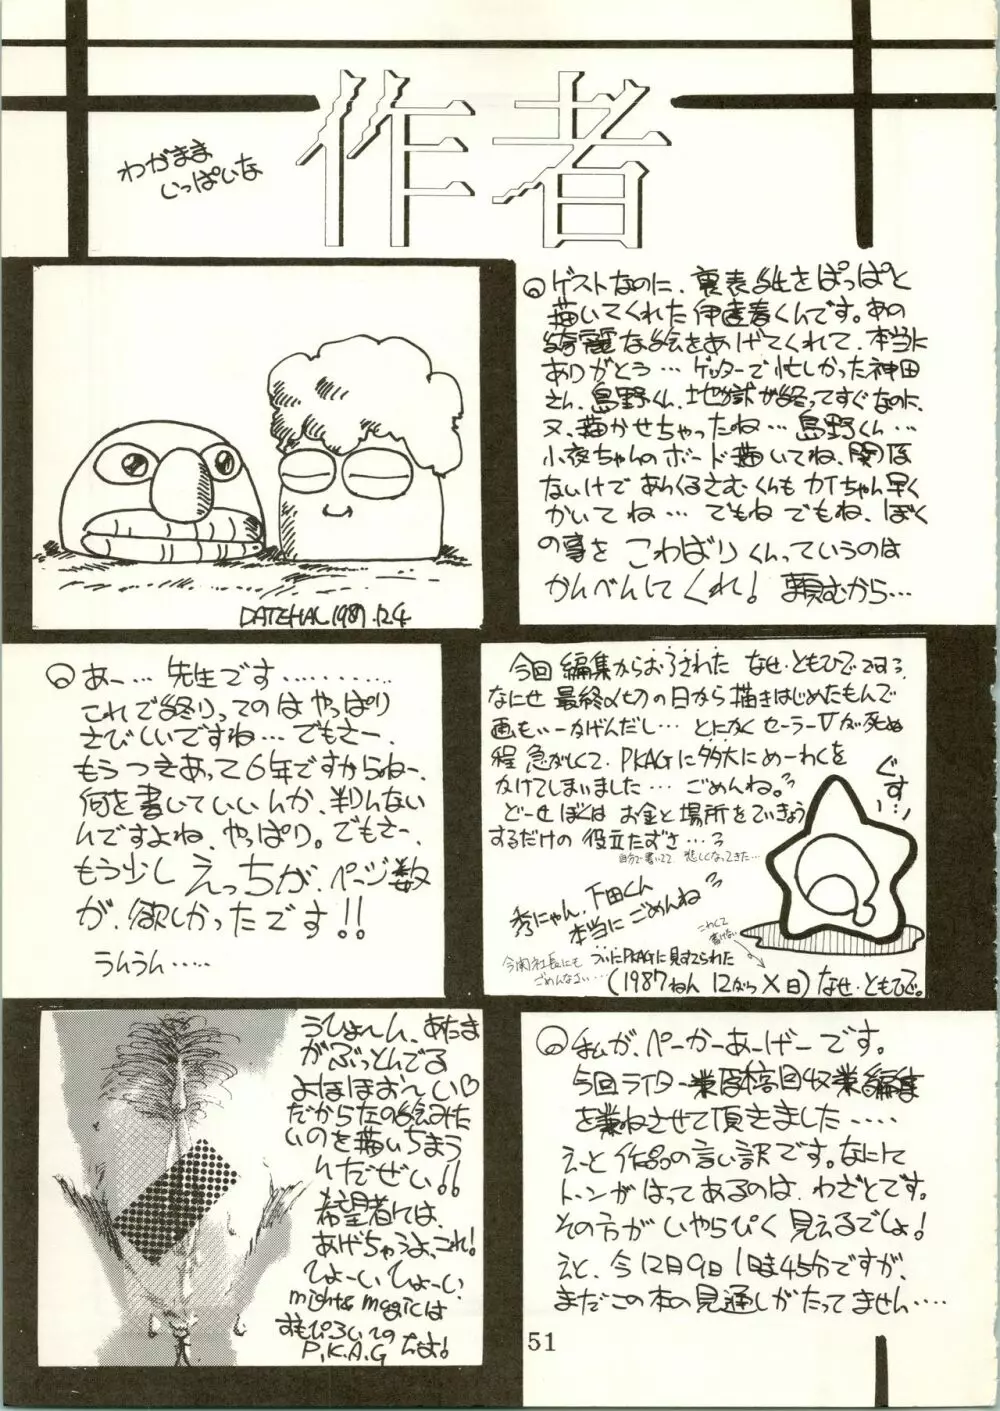 わがまま
いっぱいな
作者
ゲストなのに、裏表紙をぱっぱと
描いてくれた伊達春くんです。あの
綺麗な絵をあげてくれて、本当に
ありがとう… ゲッターで忙しかった神田
さん、島野くん、地獄が終ってすぐなのに、
又、描かせちゃったね… 島野くん…
小夜ちゃんのボード描いてね、関係
ないけで あらくるさむくんもカイちゃん早く
かいてね… でもね でもね、ぼく
の事を こわばりくんっていうのは
かんべんしてくれ! 頼むから…
DATEHAL 1987.12.4
あー… 先生です…………
これで終りってのは やっぱり
さびしいですね… でもさー、
もうつきあって6年ですからねー、
何を書いていいんか、判んない
んですよね、やっぱり。でもさー、
もう少し えっちが、ページ数
が、欲しかったです!!
うんうん‥‥
今回 編集からおろされた なせ・ともひでです。
なにせ 最終〆切の日から描きはじめたもんで
画もいーかげんだし… とにかく セーラーVが死ぬ
程 急がしくて、PKAGに多大にめーわくを
かけてしまいました… ごめんね。
どーせぼくは お金と場所をていきょう
するだけの 役立たずさ…
自分で書いてて 悲しくなってきた…
ぐすっ…
秀にゃん、下田くん
本当にごめんね
こわくて
書けない
今関社長にも
ごめんなさい…
ついにPKAGに見すてられた
(1987ねん 12がつ X日) なせ・ともひで。
うひょ〜ん、あたま
がぶっとんでる
よほほお〜い♡
だから左の絵みた
いのを描いちまう
んだぜい!!
希望者には、
あげちゃうよ、これ!
ひょーい ひょーい
might & magicは
すもぴろいての
P.K.A.G だよ!
私が、ぺーかーあーげーです。
今回ライター業原稿回収業編集
を兼ねさせて頂きました‥‥
えーと 作品の言い訳です。なにして
トーンがはってあるのは、わざとです。
その方が いやらぴく 見えるでしょ!
えと、今12月9日 1時45分ですが、
まだこの本の見通しがたってません‥‥
51